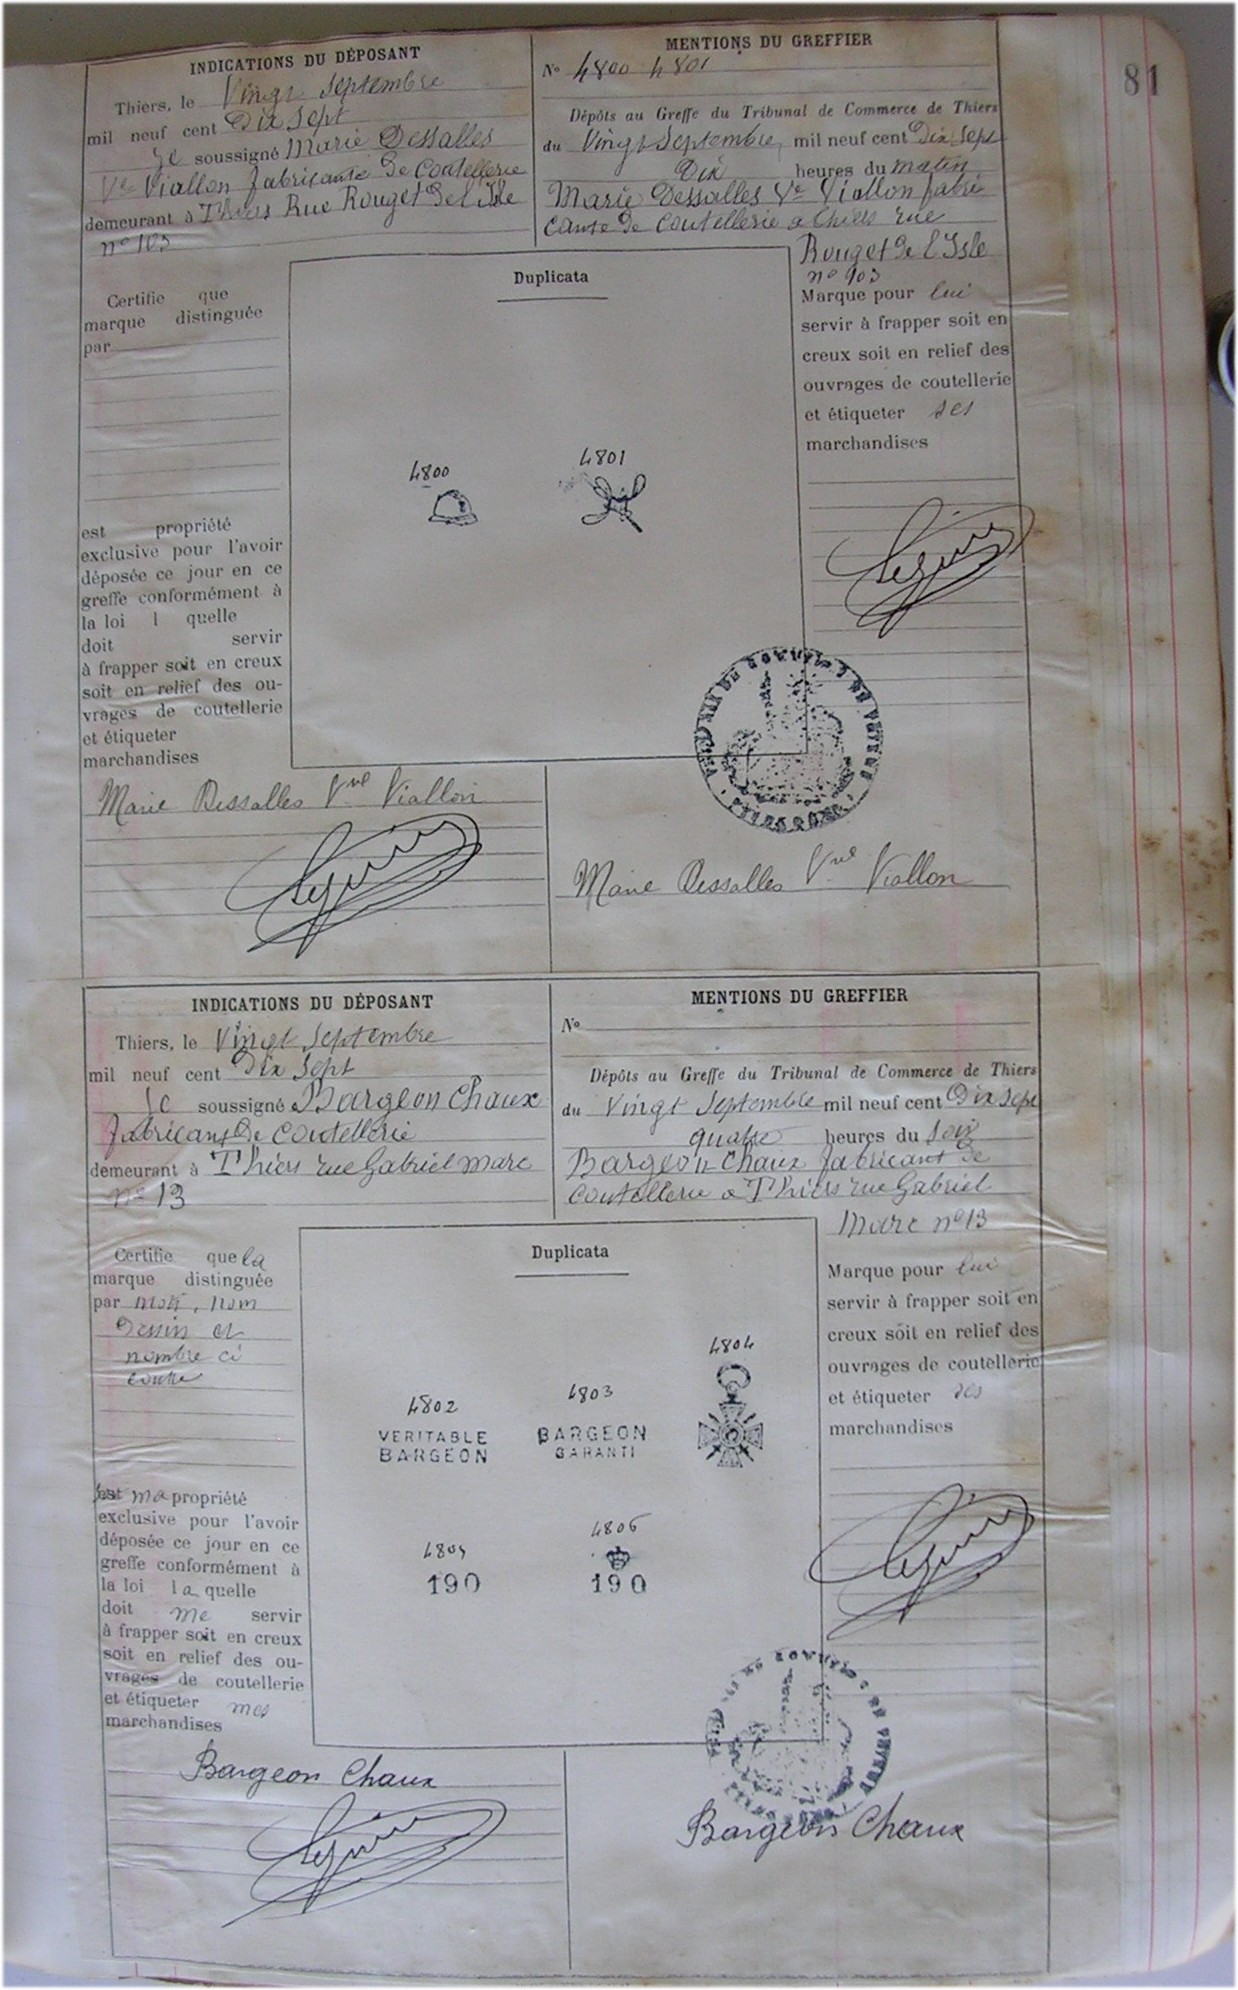 81
INDICATIONS DU DÉPOSANT
Thiers, le Vingt Septembre
mil neuf cent Dix Sept
Je soussigné Marie Dessalles
Vve Viallon fabricante de Coutellerie
demeurant à Thiers Rue Rouget de l'Isle
n° 103
Certifie que
marque distinguée
par
est propriété
exclusive pour l'avoir
déposée ce jour en ce
greffe conformément à
la loi l quelle
doit servir
à frapper soit en creux
soit en relief des ou-
vrages de coutellerie
et étiqueter
marchandises
Marie Dessalles Vve Viallon
MENTIONS DU GREFFIER
N° 4800 4801
Dépôts au Greffe du Tribunal de Commerce de Thiers
du Vingt Septembre mil neuf cent Dix Sept
Dix heures du matin
Marie Dessalles Ve Viallon fabri
cante de Coutellerie a Thiers rue
Rouget de l'Isle
n° 103
Marque pour lui
servir à frapper soit en
creux soit en relief des
ouvrages de coutellerie
et étiqueter ses
marchandises
Duplicata
4800
4801
Marie Dessalles Vve Viallon
INDICATIONS DU DÉPOSANT
Thiers, le Vingt Septembre
mil neuf cent Dix Sept
Je soussigné Bargeon Chaux
fabricant de Coutellerie
demeurant à Thiers rue Gabriel Marc
n° 13
Certifie que la
marque distinguée
par mots, nom
dessin et
nombre ci
contre
est ma propriété
exclusive pour l'avoir
déposée ce jour en ce
greffe conformément à
la loi la quelle
doit me servir
à frapper soit en creux
soit en relief des ou-
vrages de coutellerie
et étiqueter mes
marchandises
Bargeon Chaux
MENTIONS DU GREFFIER
N°
Dépôts au Greffe du Tribunal de Commerce de Thiers
du Vingt Septembre mil neuf cent Dix Sept
quatre heures du soir
Bargeon Chaux fabricant de
Coutellerie a Thiers rue Gabriel
Marc n° 13
Marque pour lui
servir à frapper soit en
creux soit en relief des
ouvrages de coutellerie
et étiqueter ses
marchandises
Duplicata
4802
VERITABLE
BARGEON
4803
BARGEON
GARANTI
4804
4805
190
4806
190
Bargeon Chaux